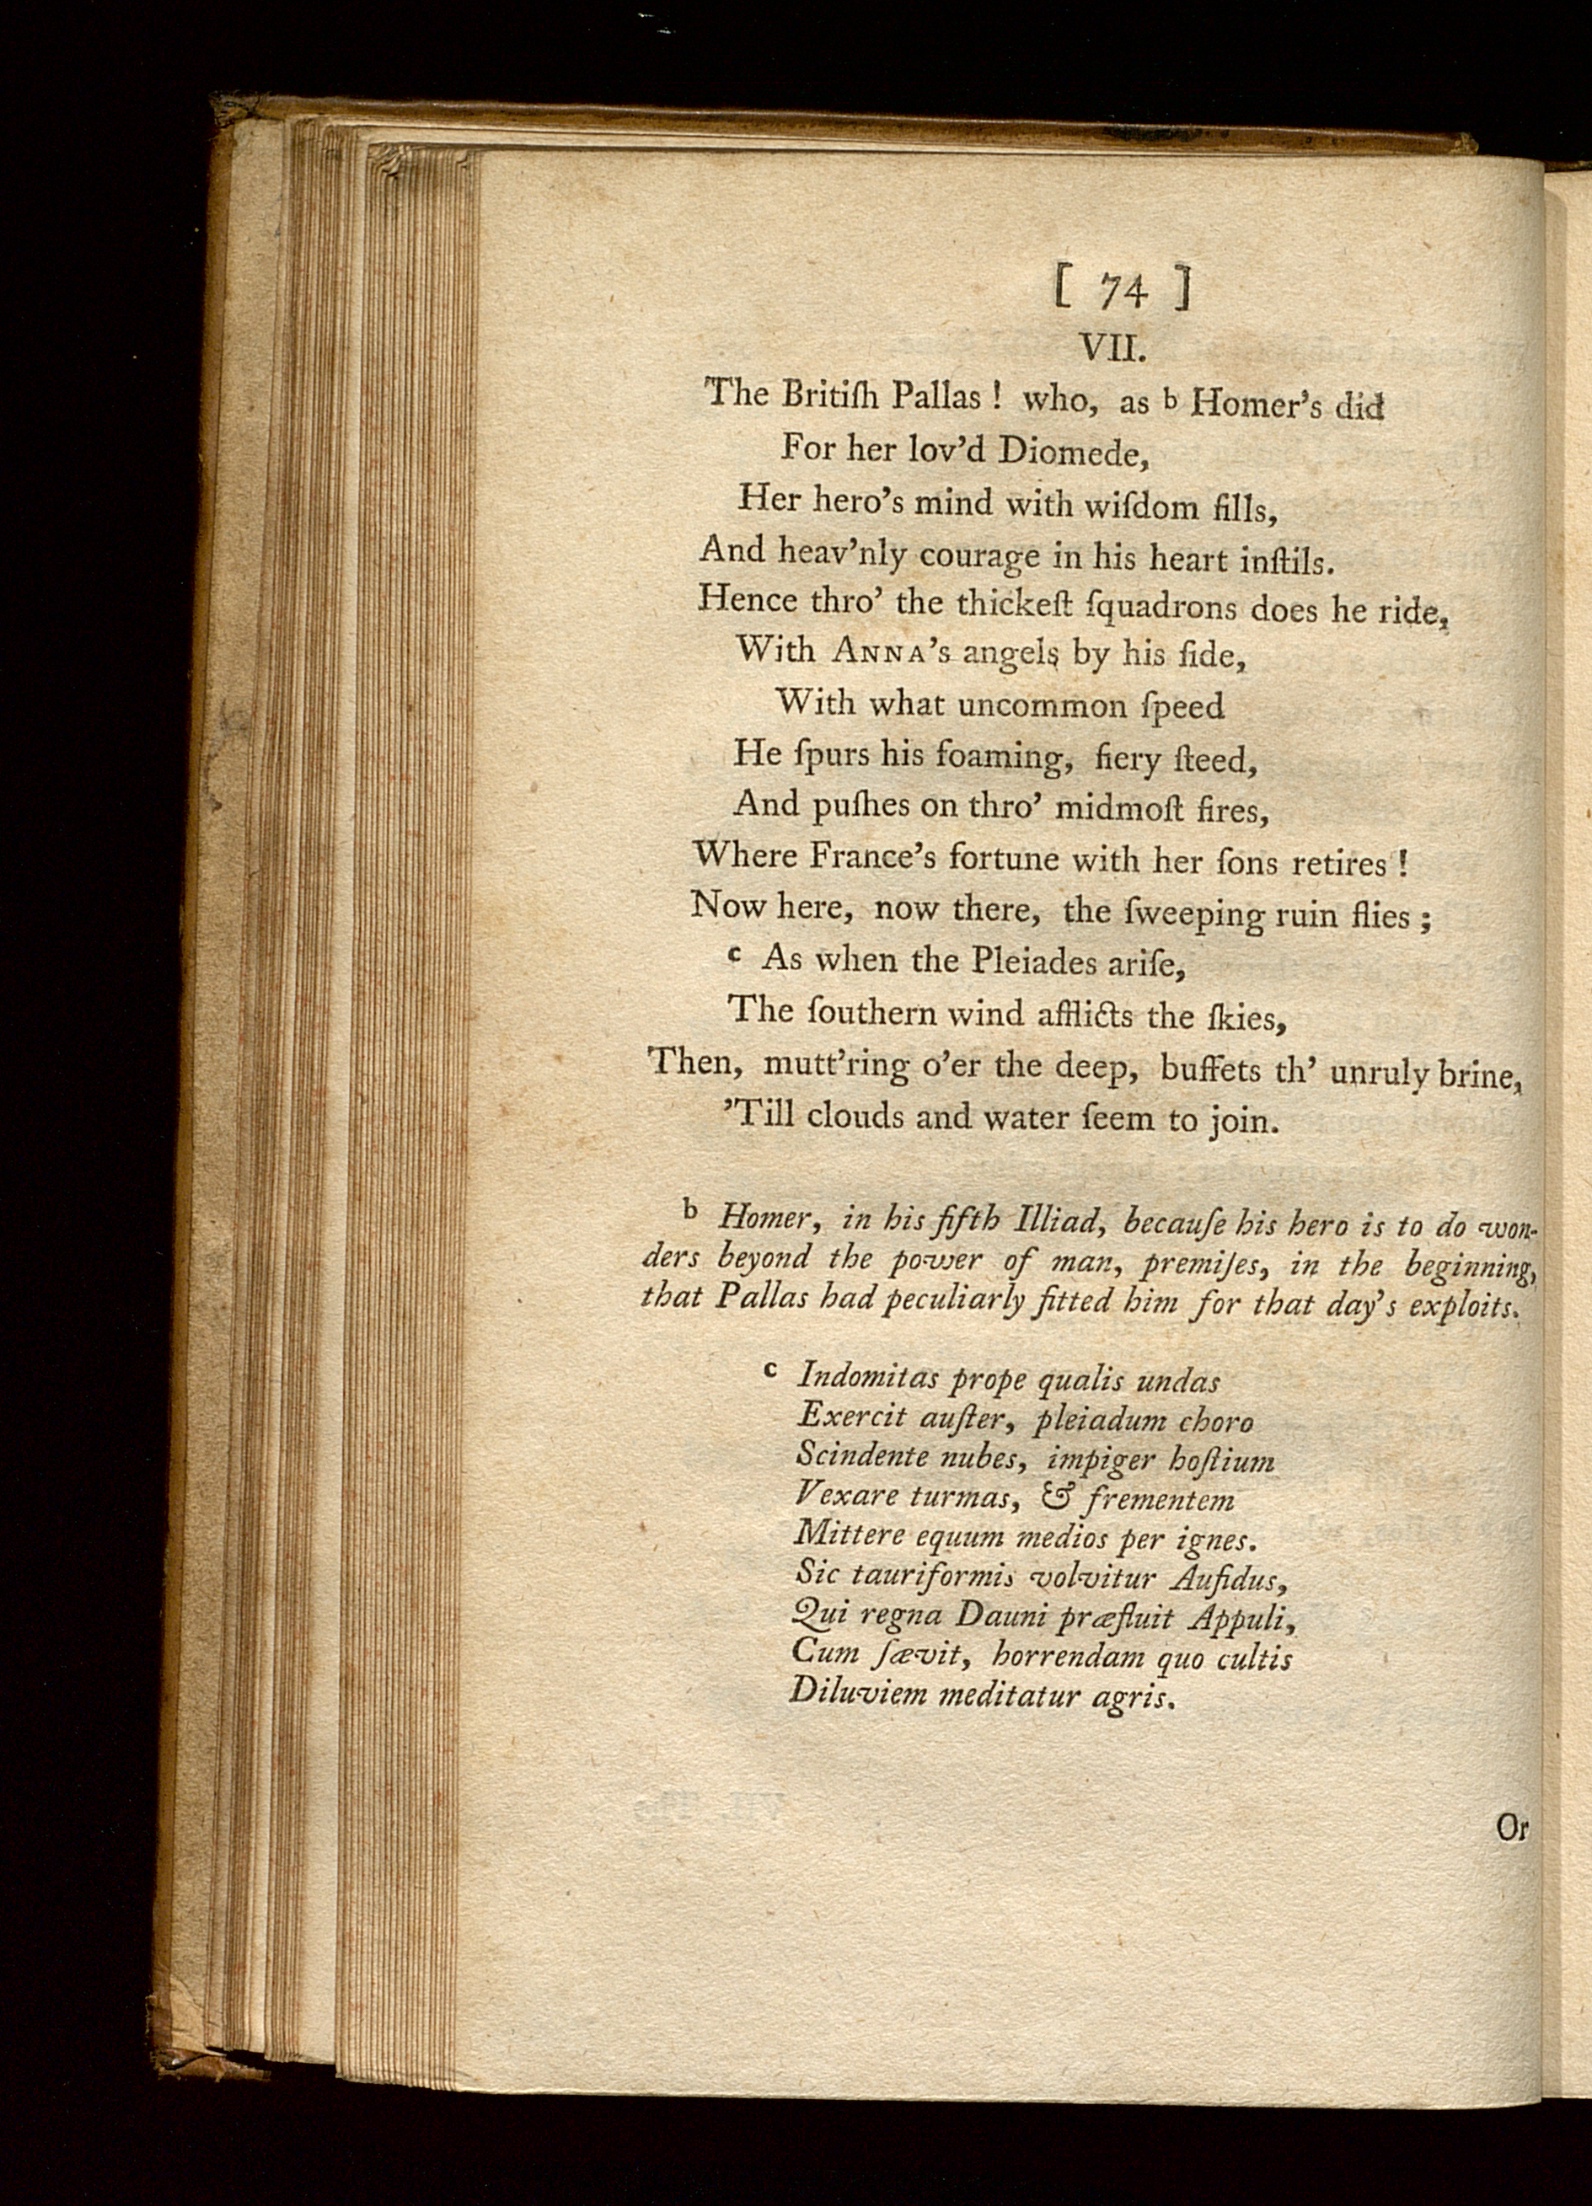 [ 74 ]
VII.
The Britiſh Pallas ! who, as b Homer's did
For her lov'd Diomede,
Her hero's mind with wiſdom fills,
And heav'nly courage in his heart inſtils.
Hence thro' the thickeſt ſquadrons does he ride,
With ANNA's angels by his ſide,
With what uncommon ſpeed
He ſpurs his foaming, fiery ſteed,
And puſhes on thro' midmoſt fires,
Where France's fortune with her ſons retires !
Now here, now there, the ſweeping ruin flies ;
c As when the Pleiades ariſe,
The ſouthern wind afflicts the ſkies,
Then, mutt'ring o'er the deep, buffets th' unruly brine,
'Till clouds and water ſeem to join.
b Homer, in his fifth Illiad, becauſe his hero is to do won-
ders beyond the power of man, premiſes, in the beginning,
that Pallas had peculiarly fitted him for that day's exploits.
c Indomitas prope qualis undas
Exercit auſter, pleiadum choro
Scindente nubes, impiger hoſtium
Vexare turmas, & frementem
Mittere equum medios per ignes.
Sic tauriformis volvitur Aufidus,
Qui regna Dauni præfluit Appuli,
Cum ſævit, horrendam quo cultis
Diluviem meditatur agris.
Or